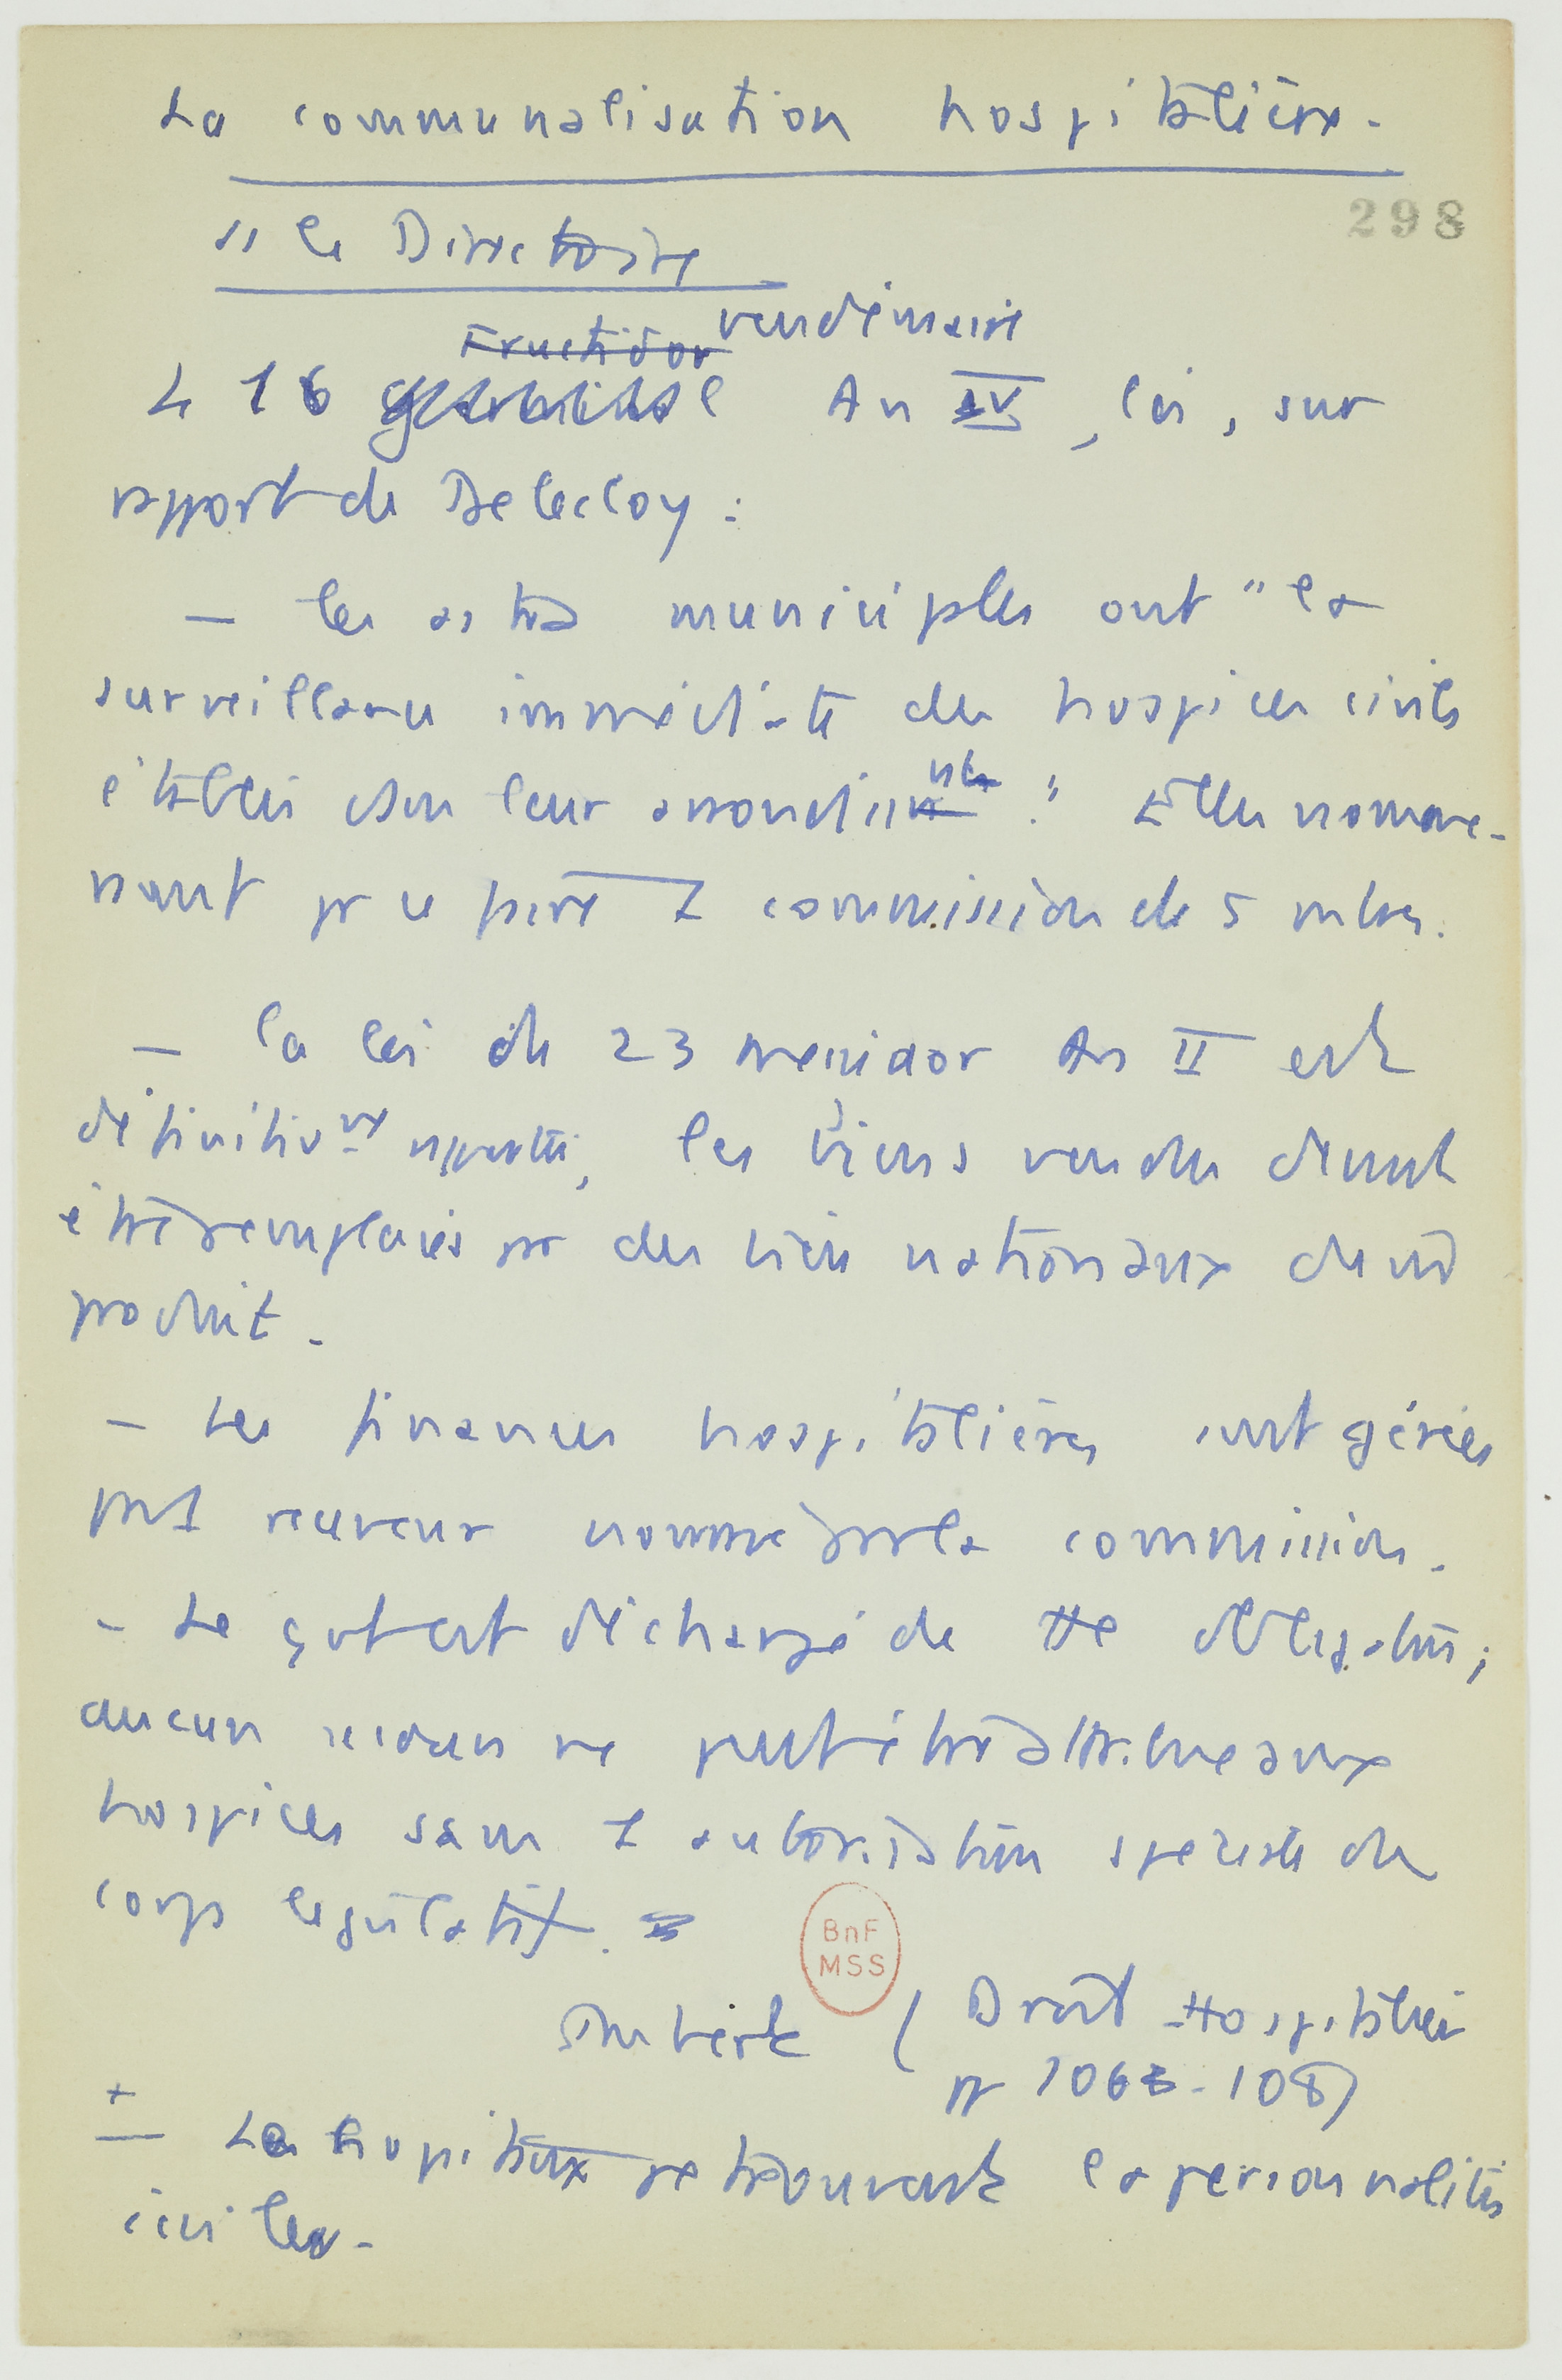 La communalisation hospitalière.
298
ss le Directoire
Fructidor vendémiaire
Le 16 An IV, loi, sur
rapport de Delecloy :
— les municipales ont "la
surveillance immédiate des hospices civils
établis dans leur arrondissmt." Elles nomme-
ront pr ce faire 1 commission de 5 mbres.
— la loi de 23 messidor An II est
définitivmt rapportée, les biens vendus devront
être remplacés par des biens nationaux de même
produit.
— Les finances hospitalières sont gérées
par 1 receveur nommé par la commission.
- Le gvt est déchargé de tte obligation ;
aucun secours ne peut être attribué aux
hospices sans 1 autorisation spéciale du
corps législatif.
BnF
MSS
Imbert (Droit Hospitalier
pp 106-108)
+
— Les hopitaux retrouvent la personnalité
civile.